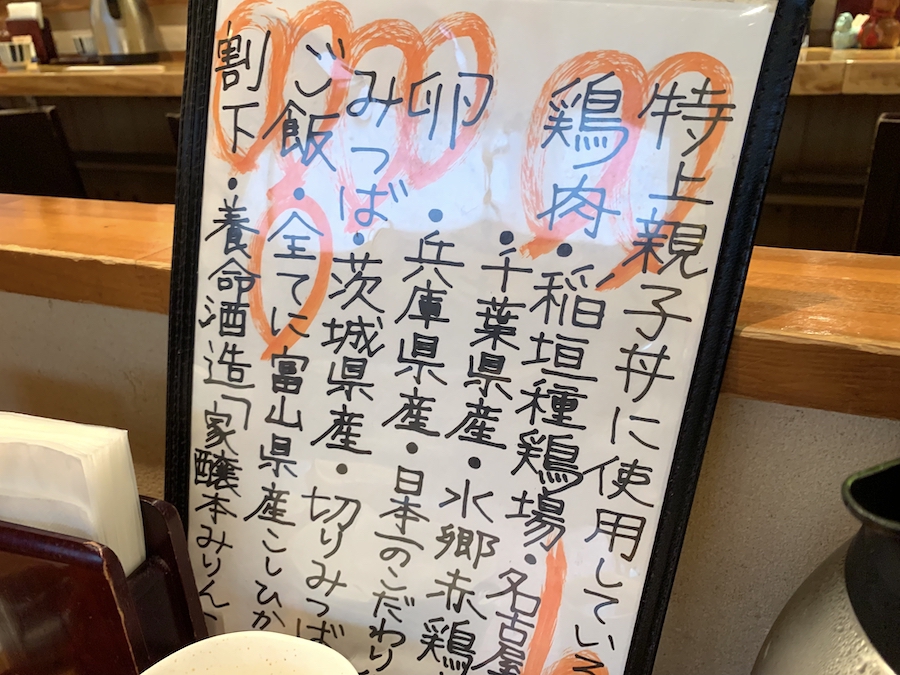 特上親子丼に使用している
鶏肉・稲垣種鶏場・名古屋
・千葉県産・水郷赤鶏
卵・兵庫県産・日本一のこだわり
みつば・茨城県産・切りみつば
ご飯・全てに富山県産こしひか
割下・養命酒造「家醸本みりん